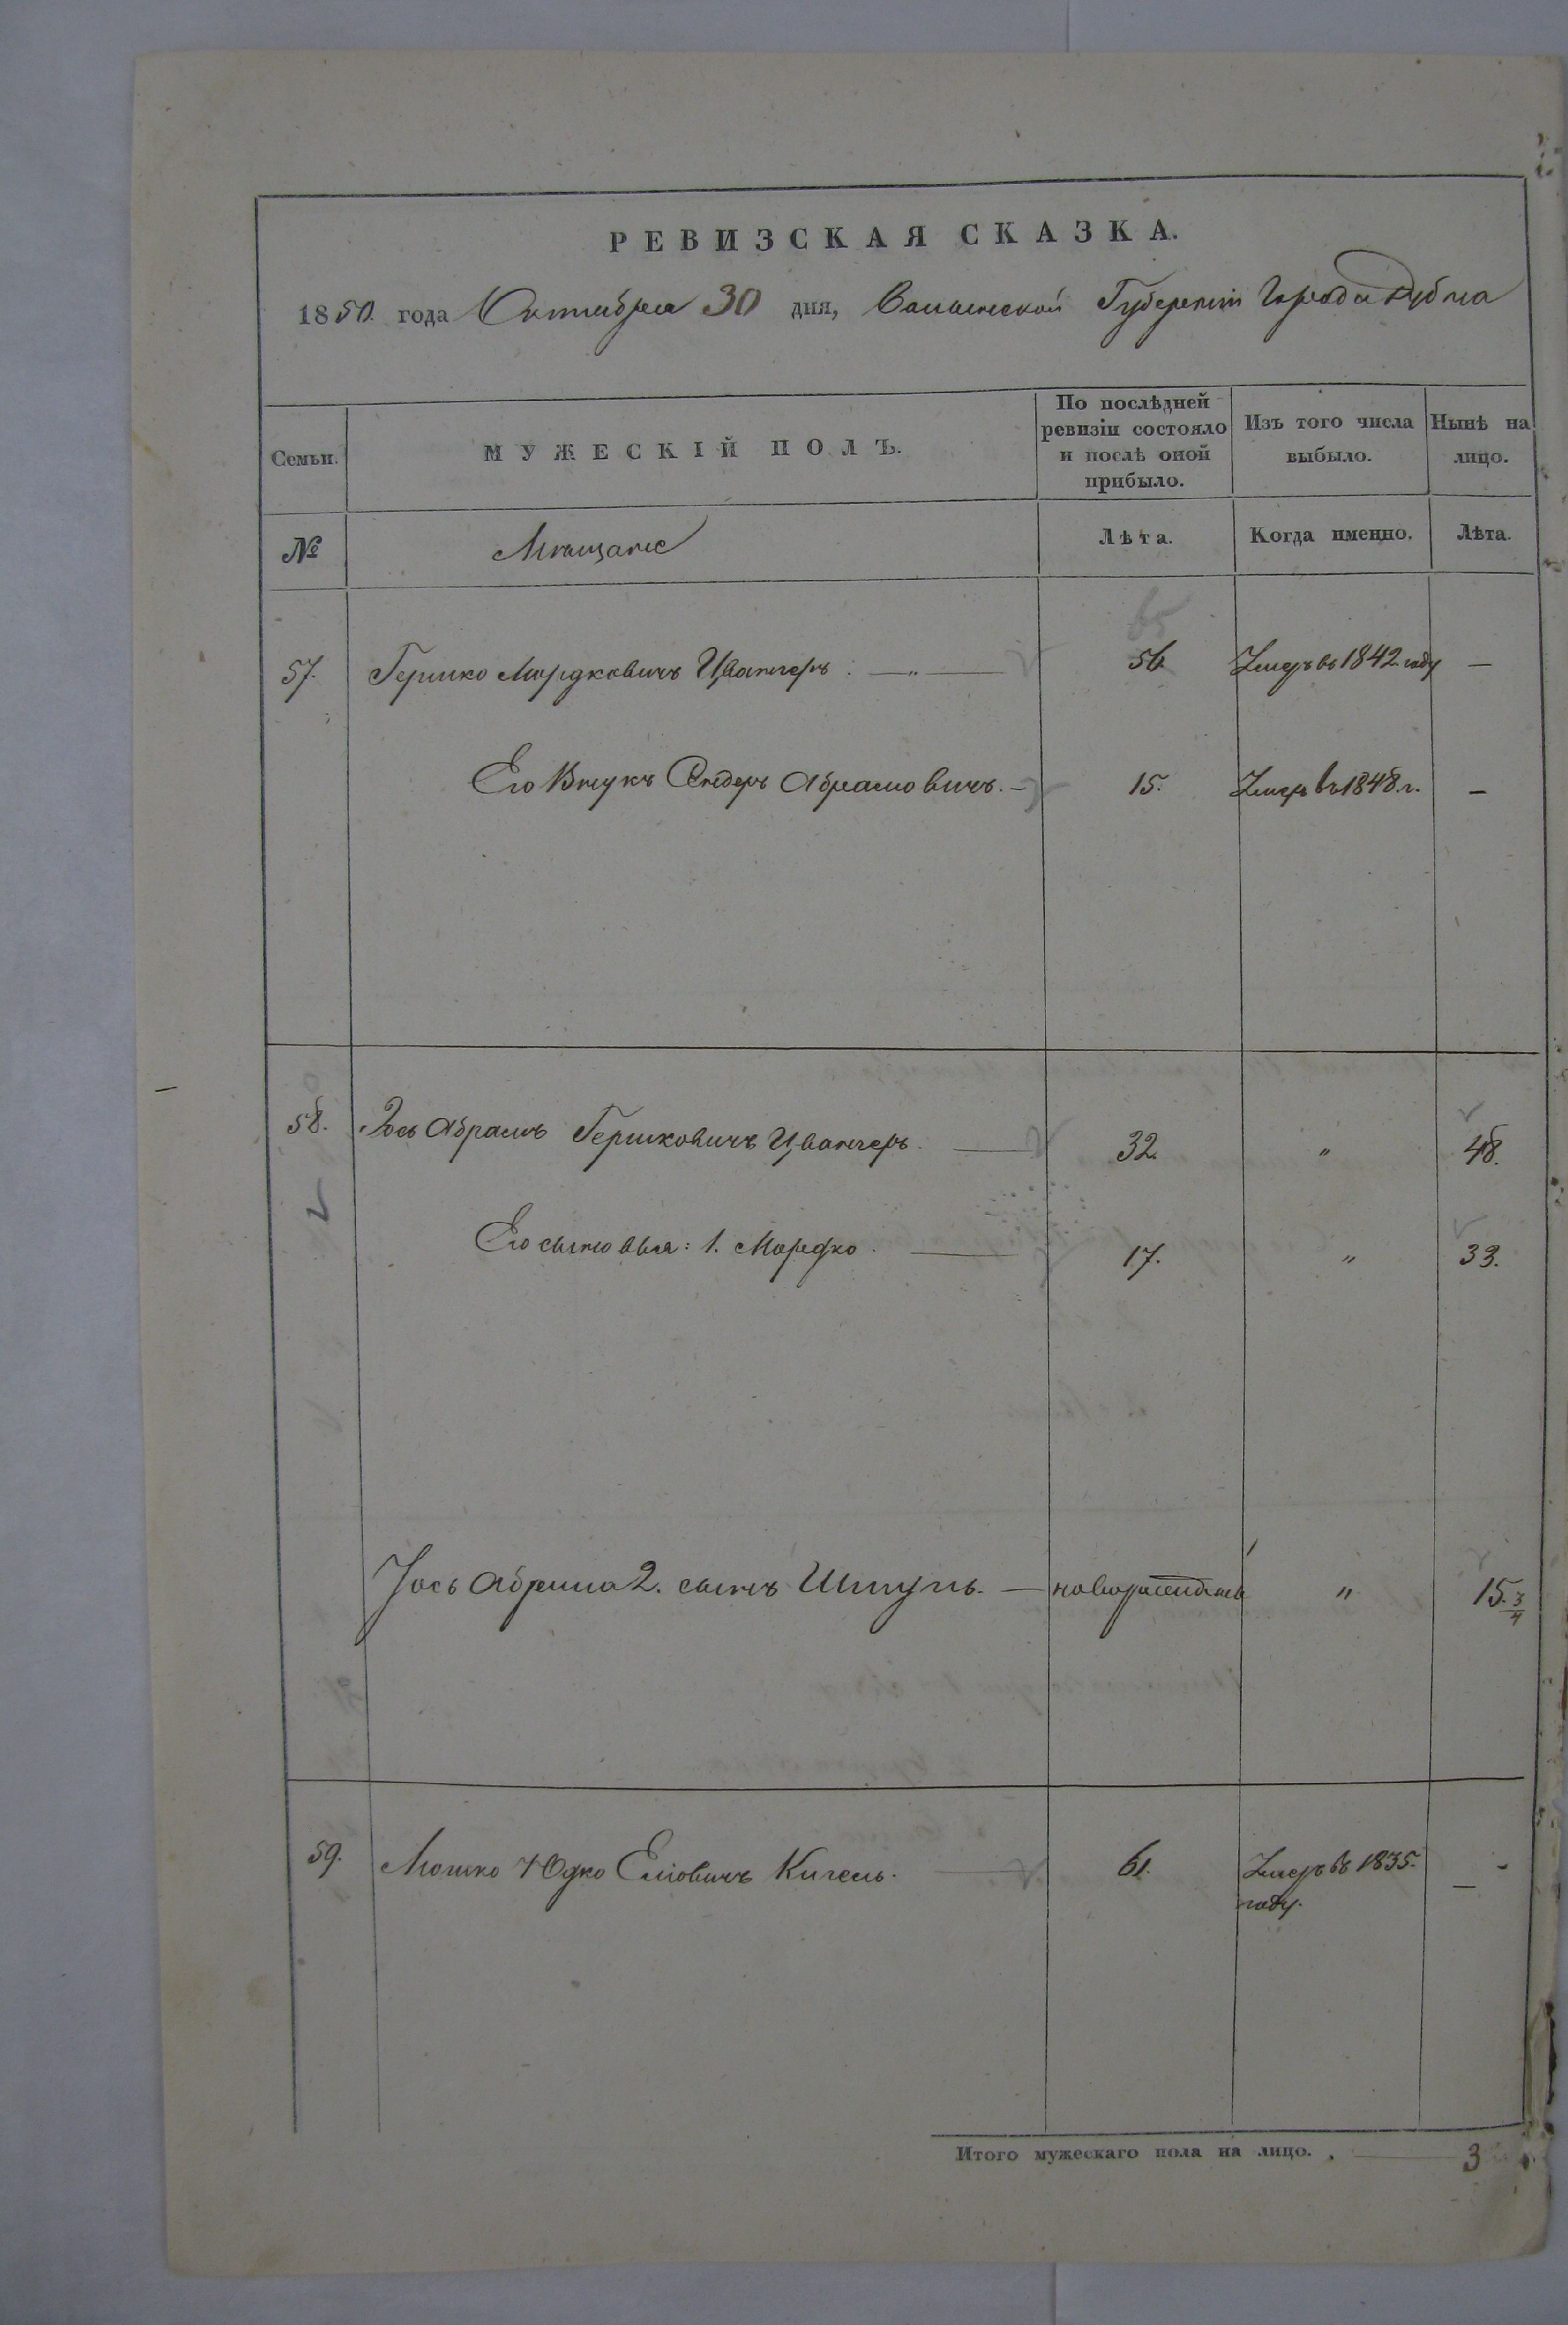 РЕВИЗСКАЯ СКАЗКА.
1850 года Октября 30 дня, Волынской Губернии Города Дубна
Семьи. МУЖЕСКІЙ ПОЛЪ. По послѣдней ревизіи состояло и послѣ оной прибыло. Изъ того числа выбыло. Нынѣ на лицо.
№ Мѣщане Лѣта. Когда именно. Лѣта.
57. Гершко Мордковичъ Цванчеръ. — „ — 56 Умеръ въ 1842. году —
Его Внукъ Сендеръ Абрамовичъ. — 15. Умеръ въ 1848. г. —
58. Іось Абрамъ Гершковичъ Цванчеръ. — 32. „ 48.
Его сыновья: 1. Мордко. — 17. „ 33.
Іось Абрама 2. сынъ — новорожденъ „ 15. 3/4
59. Мошко Юдко Еліовичъ Кигель. — 61. Умеръ въ 1835.
году. —
Итого мужескаго пола на лицо. . — 3